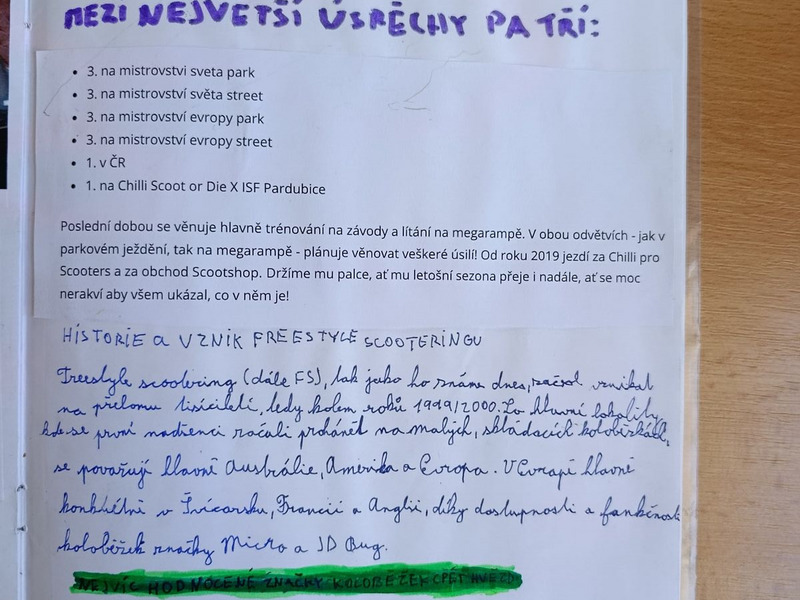 MEZI NEJVETŠÍ ÚSPĚCHY PATŘÍ:
• 3. na mistrovstvi sveta park
• 3. na mistrovství světa street
• 3. na mistrovství evropy park
• 3. na mistrovství evropy street
• 1. v ČR
• 1. na Chilli Scoot or Die X ISF Pardubice
Poslední dobou se věnuje hlavně trénování na závody a lítání na megarampě. V obou odvětvích - jak v
parkovém ježdění, tak na megarampě - plánuje věnovat veškeré úsilí! Od roku 2019 jezdí za Chilli pro
Scooters a za obchod Scootshop. Držíme mu palce, ať mu letošní sezona přeje i nadále, ať se moc
nerakví aby všem ukázal, co v něm je!
HISTORIE a VZNIK FREESTYLE SCOOTERINGU
Freestyle scootering (dále FS), tak jako ho známe dnes, začal vznikat
na přelomu tisíciletí, tedy kolem roků 1999/2000. Za hlavní lokality,
kde se první nadšenci začali prohánět na malých, skládacích koloběžkách,
se považují hlavně Austrálie, Amerika a Evropa. V Evropě hlavně
konkrétně v Švícarsku, Francii a Anglii, díky dostupnosti a funkčnosti
koloběžek značky Micro a JD Bug.
NEJVÍC HODNOCENÉ ZNAČKY KOLOBĚŽEK (PĚT HVĚZD